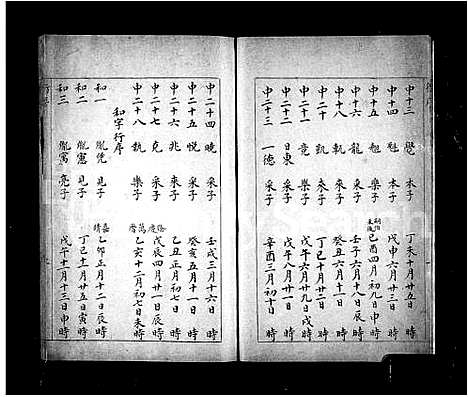 中十三 覺 本子 丁亥十月廿五日 時
中十四 魁 本子 戊申六月廿三日 時
中十五 魁 樂子 己酉四月初九日申 時
中十六 龍 采子 壬子六月十八日辰 時
中十 采子 癸丑六月十一日 時
中十 凱 來子 丁巳十月廿二日 時
中二十一 竟 采子 戊午六月廿九日戌 時
中二十二 日東 采子 戊午八月廿一日 時
中二十三 一德 采子 辛酉三月初十日 時
中二十四 曉 采子 壬戌三月十六日 時
中二十五 悅 采子 癸亥五月十一日 時
中二十六 兆 來子 乙丑正月初七日 時
中二十七 克 采子 隆慶戊辰四月廿一日辰 時
中二十八 凱 樂子 萬曆乙亥十二月初七日未 時
和字行序
和一 胤 見子 嘉靖乙卯五月十二日辰 時
和二 胤憲 見子 丁巳十二月廿五日寅 時
和三 胤 亮子 戊午十一月十三日申 時